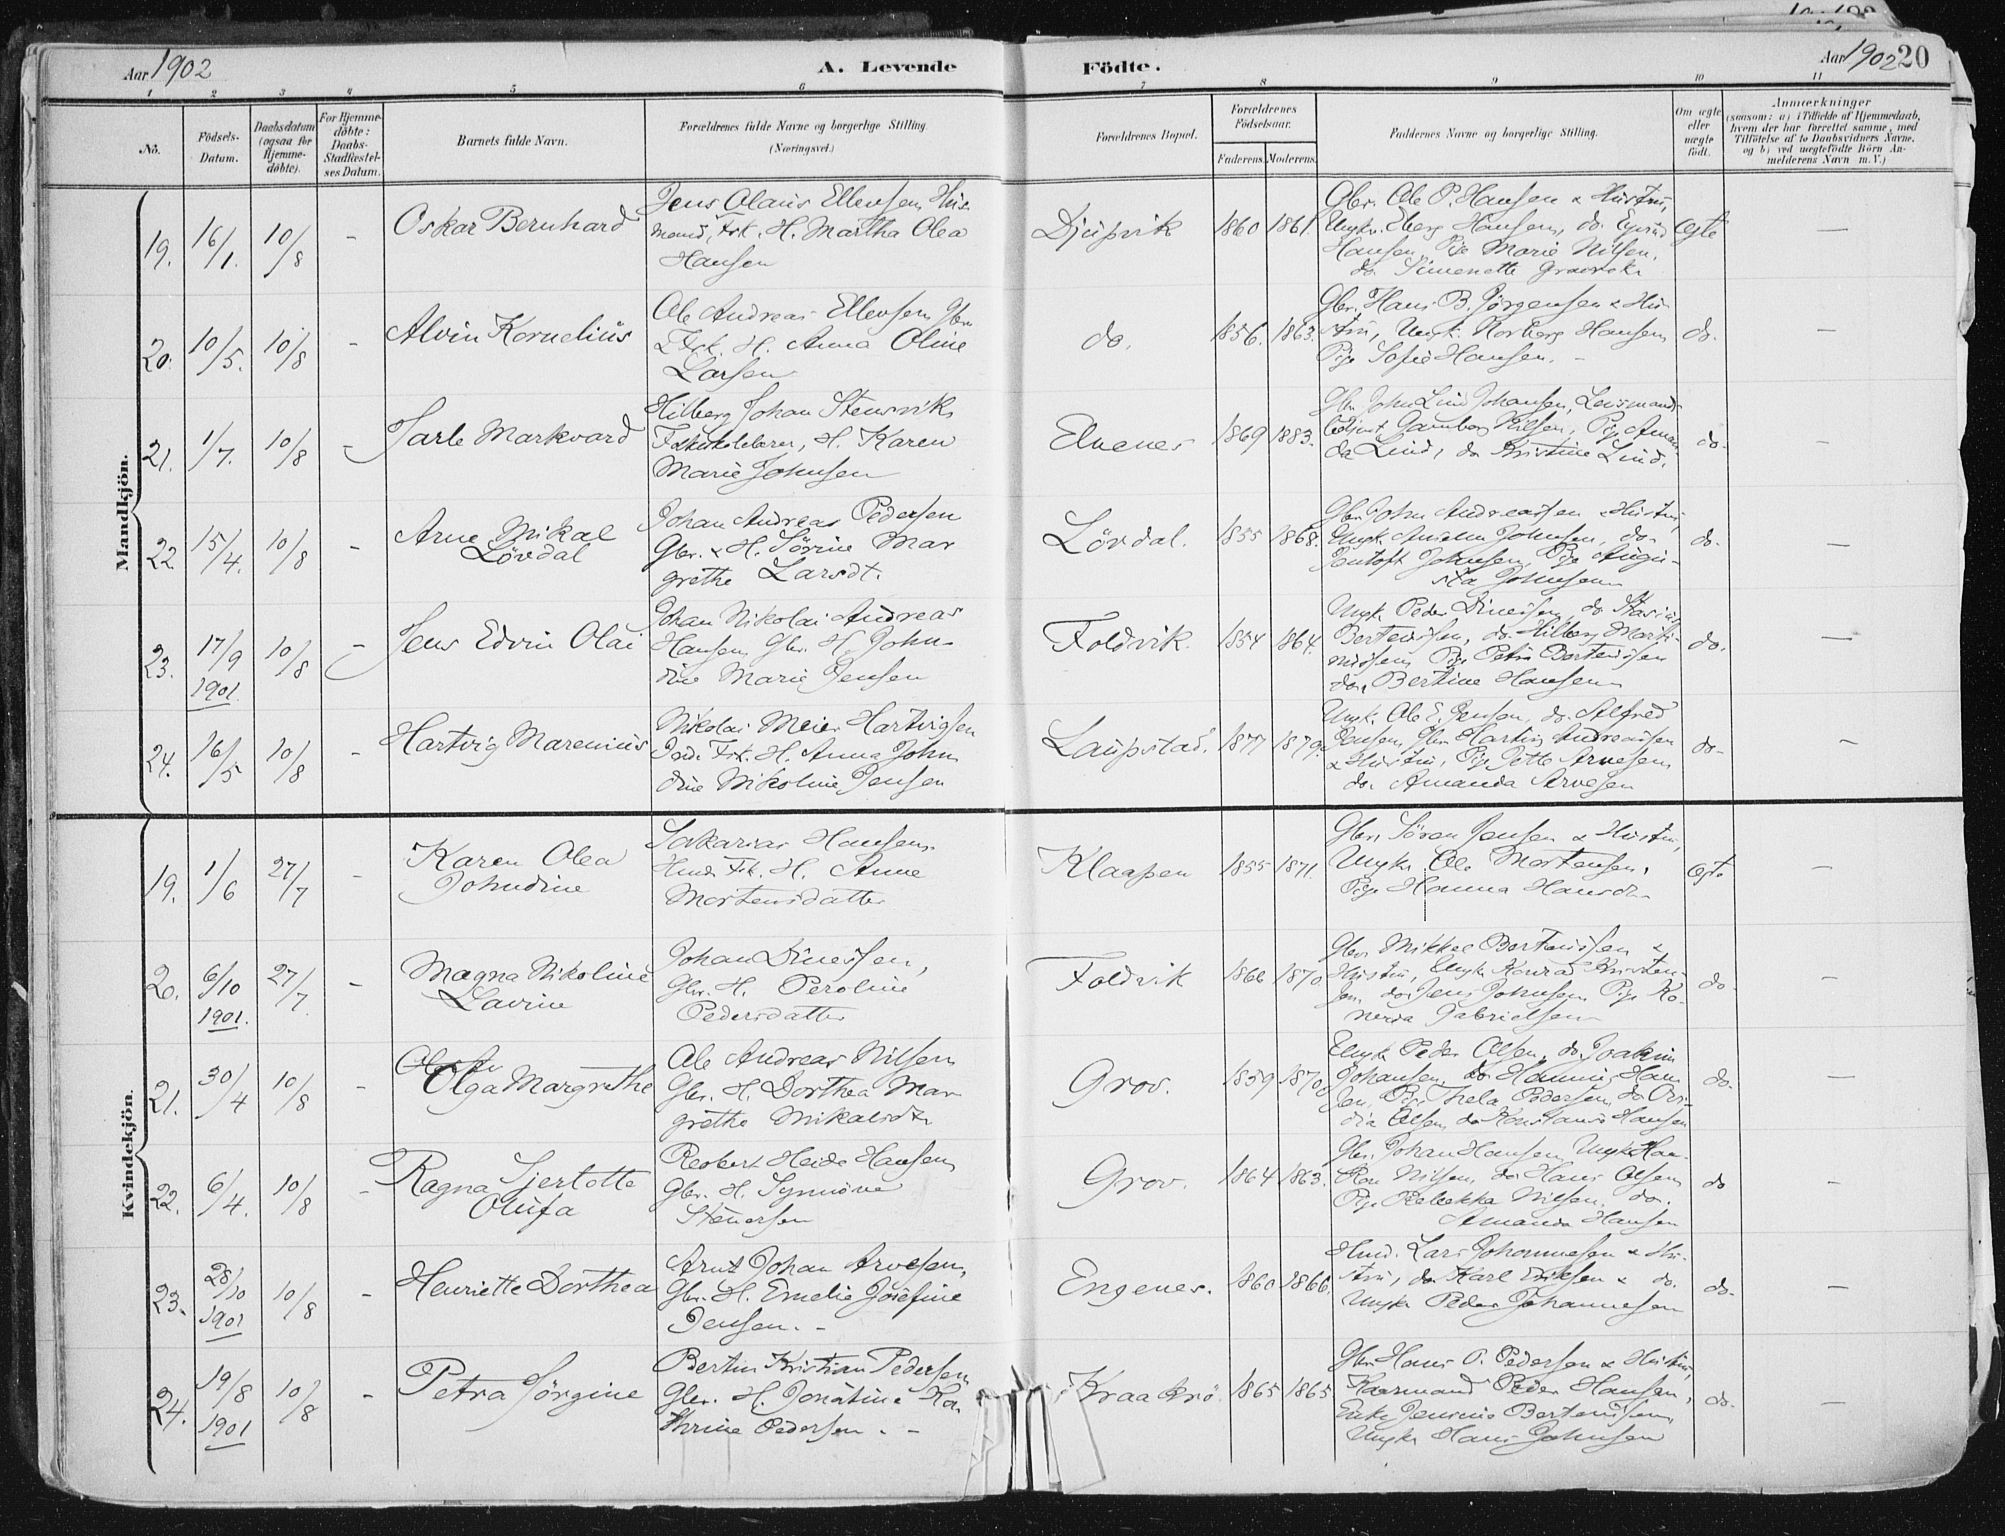 Aar 1902
A. Levende
Födte.
Aar 1902 20
1 2 3 4 5 6 7 8 9 10 11
No.
Födsels-Datum.
Daabsdatum (ogsaa for Hjemme-döbte).
For Hjemme-döbte: Daabs-Stadfæstel-ses Datum.
Barnets fulde Navn.
Forældrenes fulde Navne og borgerlige Stilling. (Næringsvei.)
Forældrenes Bopæl.
Forældrenes Födselsaar.
Faderens. Moderens.
Faddernes Navne og borgerlige Stilling.
Om ægte eller uægte födt.
Anmærkninger
(saasom: a) i Tilfælde af Hjemmedaab,
hvem der har forrettet samme, med
Tilföielse af to Daabsvidners Navne,
og b) ved uægtefödte Börn An-
melderens Navn m. V.)
Mandkjön.
19. 16/1. 10/8 - Oskar Bernhard
Jens Olaus Ellevsen Hus-
mand, Fsk. H. Martha Olea
Hansen
Djupvik 1860 1861
Gbr. Ole P. Hansen & Hustru,
Ungk. Eberg Hansen, do. Eyvind
Hansen, Pige Marie Nilsen,
do. Simenette
Ægte —
20. 10/5. 10/8 - Alvin Kornelius
Ole Andreas Ellevsen Gbr.
& Fsk. H. Anna Oline
Larsen
do. 1856. 1863.
Gbr. Hans B. Jörgensen & Hu-
stru, Ungk. Norberg Hansen
Pige Sofie Hansen. -
do. —
21. 1/7. 10/8 - Jarle Markvard
Hilberg Johan Stensvik,
H. Karen
Marie Johnsen
Elvenes 1869 1883.
Gbr. John Lind Johansen, Lensmands-
Nilsen, Pige Aman-
da Lind, do Kristine Lind.
do. —
22 15/4. 10/8 - Arne Mikal
Lövdal
Johan Andreas Pedersen
Gbr. & H. Sörine Mar
grethe Larsdt.
Lövdal. 1855 1868.
Gbr. John Andreassen & Hustru,
Ungk. Johnsen, do.
Johnsen, Pige Augu-
sta Johnsen
do. —
23. 17/9 1901. 10/8 - Jens Edvin Olai
Johan Nikolai Andreas
Hansen, Gbr. H. John-
dine Marie Jensen
Foldvik. 1854 1864.
Ungk. Peder Dinesen, do
Berteussen, do. Hilberg Marti-
nussen, Pige Petra Berteussen
do. Bertine Hansen
do. —
24. 16/5 10/8 - Hartvig Marenius
Nikolai Meier Hartvigsen
Fsk. H. Anna John
dine Nikoline Jensen
Laupstad. 1877 1879.
Ungk. Ole E. Jensen, do. Alfred
Jensen, Gbr. Martin Andreassen
& Hustru, Pige Jette Arvesen,
do. Amanda Arvesen
do. —
Kvindekjön.
19. 1/6 27/7 - Karen Olea
Johndine
Sakarias Hansen,
Hmd. Fsk. H. Anne
Mortensdatter
Klaapen 1855 1871.
Gbr. Sören Jensen & Hustru,
Ungk. Ole Mortensen,
Pige Hanna Hansdt.
Ægte —
20. 6/10 1901. 27/7. - Magna Nikoline
Lavine
Johan Dinessen,
Gbr. H. Peroline
Pedersdatter
Foldvik 1866 1870
Gbr. Mikkel Berteussen &
Hustru, Ungk. Konrad Kristen-
sen do Jens Johnsen Pige Ko-
nerda Gabrielsen
do. —
21. 30/4 10/8 - Olga Margrethe
Ole Andreas Nilsen
Gbr. H. Dorthea Mar
grethe Mikalsdt.
Grov. 1859 1870
Ungk. Peder Olsen, do. Joakim
Johansen, do Henning Han
sen, Pige Thela Pedersen, do. Ovi-
dia Olsen, do Konstanse Hansen
do. —
22. 6/4. 10/8 - Ragna Sjertotte
Olufa
Robert Heide Hansen
Gbr. H. Synnöve
Stenersen
Grov. 1864 1863.
Gbr. Johan Hansen, Ungk. Haa-
kon Nilsen, do Hans Olsen
Pige Rebekka Nilsen, do.
Amanda Hansen
do —
23. 28/10 1901 10/8 - Henriette Dorthea
Arnt Johan Arvesen,
Gbr. H. Emelie Josefine
Jensen. -
Engenes. 1860 1866.
Hmd. Lars Johannesen & Hu-
stru, do. Karl Eriksen & do.
Ungk. Peder Johannesen
do. —
24. 19/8 1901 10/8 - Petra Jörgine
Bertin Kristian Pedersen
Gbr. H. Jonatine Ka
thrine Pedersen. -
Kraakrö. 1865 1865
Gbr. Hans O. Pedersen & Hustru,
Kaarmand Peder Hansen,
Enke Jensine Berteussen,
Ungk. Hans Johnsen
do. —